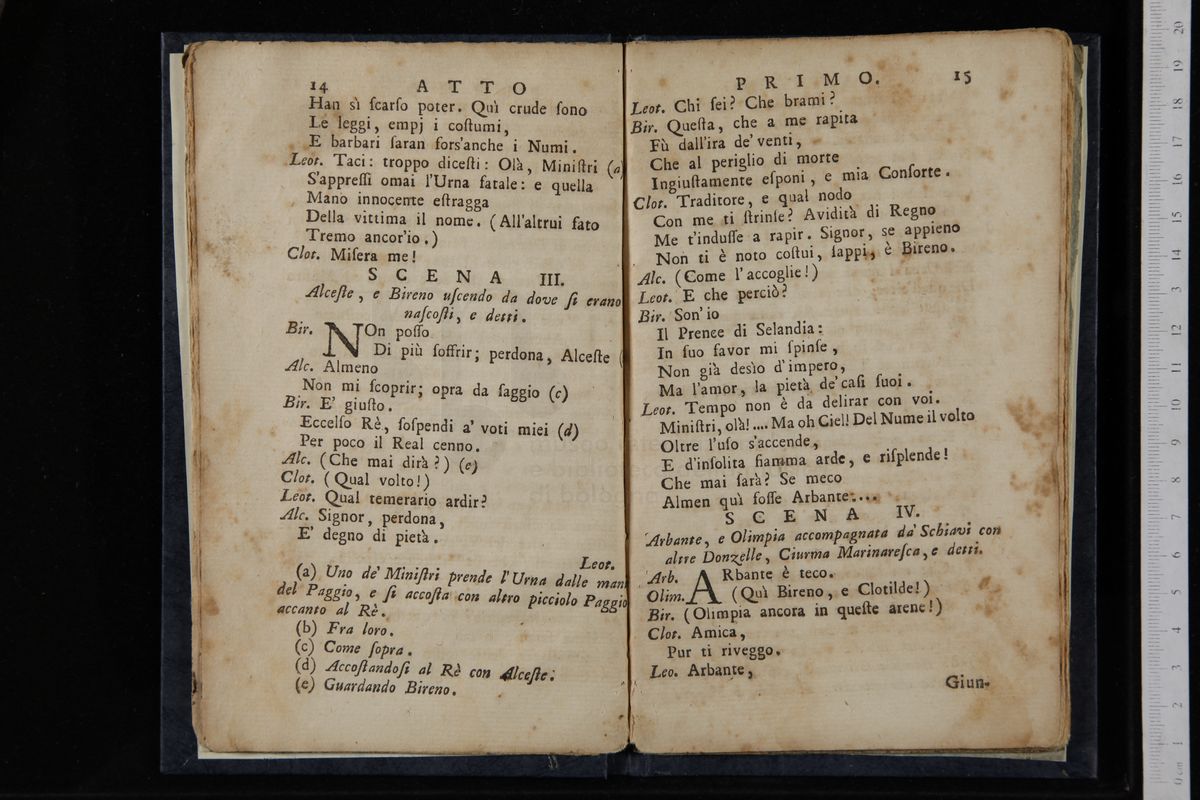 14 ATTO
Han sì ſcarſo poter. Quì crude ſono
Le leggi, empj i coſtumi,
E barbari ſaran fors'anche i Numi.
Leot. Taci: troppo diceſti: Olà, Miniſtri (a)
S'appreſſi omai l'Urna fatale: e quella
Mano innocente eſtragga
Della vittima il nome. (All'altrui fato
Tremo ancor'io.)
Clot. Miſera me!
SCENA III.
Alceſte, e Bireno uſcendo da dove ſi erano
naſcoſti, e detti.
Bir. NOn poſſo
Di più ſoffrir; perdona, Alceſte (
Alc. Almeno
Non mi ſcoprir; opra da ſaggio (c)
Bir. E' giuſto.
Eccelſo Rè, ſoſpendi a' voti miei (d)
Per poco il Real cenno.
Alc. (Che mai dirà?) (e)
Clot. (Qual volto!)
Leot. Qual temerario ardir?
Alc. Signor, perdona,
E' degno di pietà.
Leot.
(a) Uno de' Miniſtri prende l'Urna dalle mani
del Paggio, e ſi accoſta con altro picciolo Paggio
accanto al Rè.
(b) Fra loro.
(c) Come ſopra.
(d) Accoſtandoſi al Rè con Alceſte.
(e) Guardando Bireno.
PRIMO. 15
Leot. Chi ſei? Che brami?
Bir. Queſta, che a me rapita
Fù dall'ira de' venti,
Che al periglio di morte
Ingiuſtamente eſponi, e mia Conſorte.
Clot. Traditore, e qual nodo
Con me ti ſtrinſe? Avidità di Regno
Me t'induſſe a rapir. Signor, se appieno
Non ti è noto coſtui, ſappi, è Bireno.
Alc. (Come l'accoglie!)
Leot. E che perciò?
Bir. Son' io
Il Prence di Selandia:
In ſuo favor mi ſpinſe,
Non già desìo d'impero,
Ma l'amor, la pietà de' caſi ſuoi.
Leot. Tempo non è da delirar con voi.
Miniſtri, olà!.... Ma oh Ciel! Del Nume il volto
Oltre l'uſo s'accende,
E d'inſolita fiamma arde, e riſplende!
Che mai ſarà? Se meco
Almen quì foſſe Arbante....
SCENA IV.
Arbante, e Olimpia accompagnata da Schiavi con
altre Donzelle, Ciurma Marinareſca, e detti.
Arb. ARbante è teco.
Olim. (Quì Bireno, e Clotilde!)
Bir. (Olimpia ancora in queſte arene!)
Clot. Amica,
Pur ti riveggo.
Leo. Arbante,
Giun-